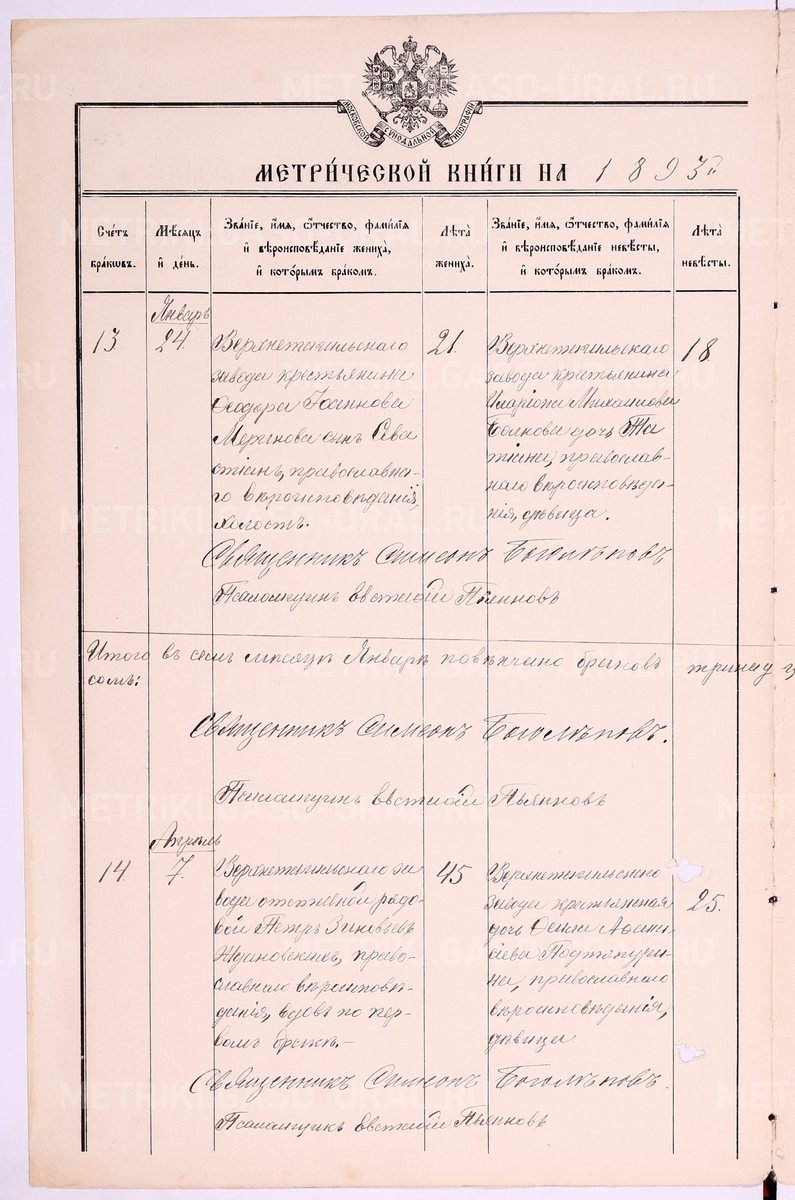 МОСКОВСКОЙ СѴНОДАЛЬНОЙ ТИПОГРАФІИ
МЕТРИ́ЧЕСКОЙ КНИ́ГИ НА 1893й
Сче́тъ бра́кѡвъ.
Мѣ́сяцъ и҆ де́нь.
Зва́нїе, и҆́мя, ѻ҆́тчество, фами́лїя и҆ вѣроисповѣ́данїе жениха̀, и҆ кото́рымъ бра́комъ.
Лѣ́та жениха̀.
Зва́нїе, и҆́мя, ѻ҆́тчество, фами́лїя и҆ вѣроисповѣ́данїе невѣ́сты, и҆ кото́рымъ бра́комъ.
Лѣ́та невѣ́сты.
13
Январь
24.
Верхнетагильскаго
завода крестьянина
Ѳеодора Іоаннова
сынъ Сева
стіанъ, православна-
го вѣроисповѣданія,
холостъ.
21.
Верхнетагильскаго
завода крестьянина
Иларіона Михаилова
дочь Та
тіана, православ-
наго вѣроисповѣда-
нія, дѣвица.
18.
Священникъ Симеонъ Боголѣповъ
Псаломщикъ Евстафій Пьянковъ
Итого въ семъ мѣсяцѣ Январѣ повѣнчано браковъ
Священникъ Симеонъ Боголѣповъ.
Псаломщикъ Евстафій Пьянковъ
14.
Апрѣль
7.
Верхнетагильскаго за
вода отставной рядо-
вой Петръ Зиновьевъ
право-
славнаго вѣроисповѣ-
данія, вдовъ по пер-
вомъ бракѣ.-
45
Верхнетагильскаго
завода крестьянская
дочь Аѳана
сіева
на, православнаго
вѣроисповѣданія,
дѣвица
25.
Священникъ Симеонъ Боголѣповъ.
Псаломщикъ Евстафій Пьянковъ
METRIKI.GASO-URAL.RU